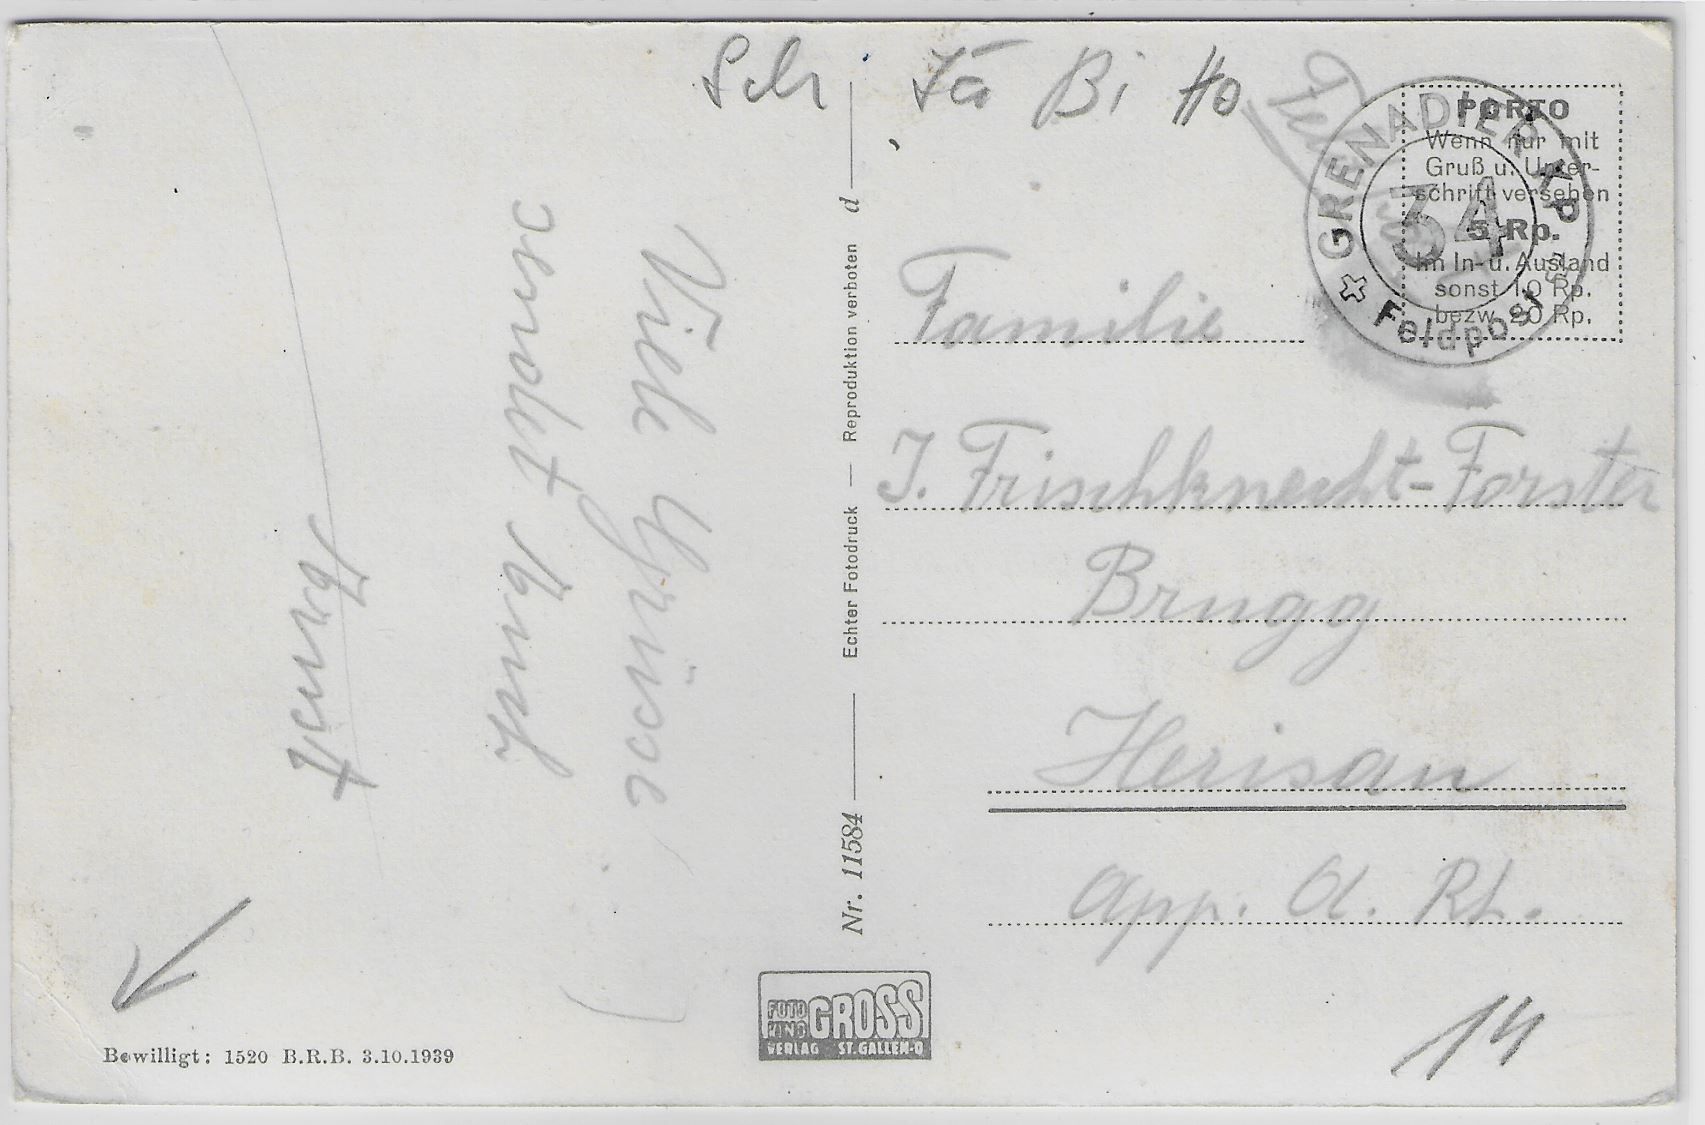 Sch Fä Bi Ho
PORTO
Wenn nur mit
Gruß u. Unter-
schrift versehen
5 Rp.
Im In- u. Ausland
sonst 10 Rp.
bezw. 20 Rp.
GRENADIER KP
34
Feldpost
Familie
J. Frischknecht-Forster
Brugg
Herisau
App. A. Rh.
14
Viele Grüsse
Ernst
Nr. 11584 — Echter Fotodruck — Reproduktion verboten d
FOTO
KINO
GROSS
VERLAG ST. GALLEN-O
Bewilligt: 1520 B.R.B. 3.10.1939